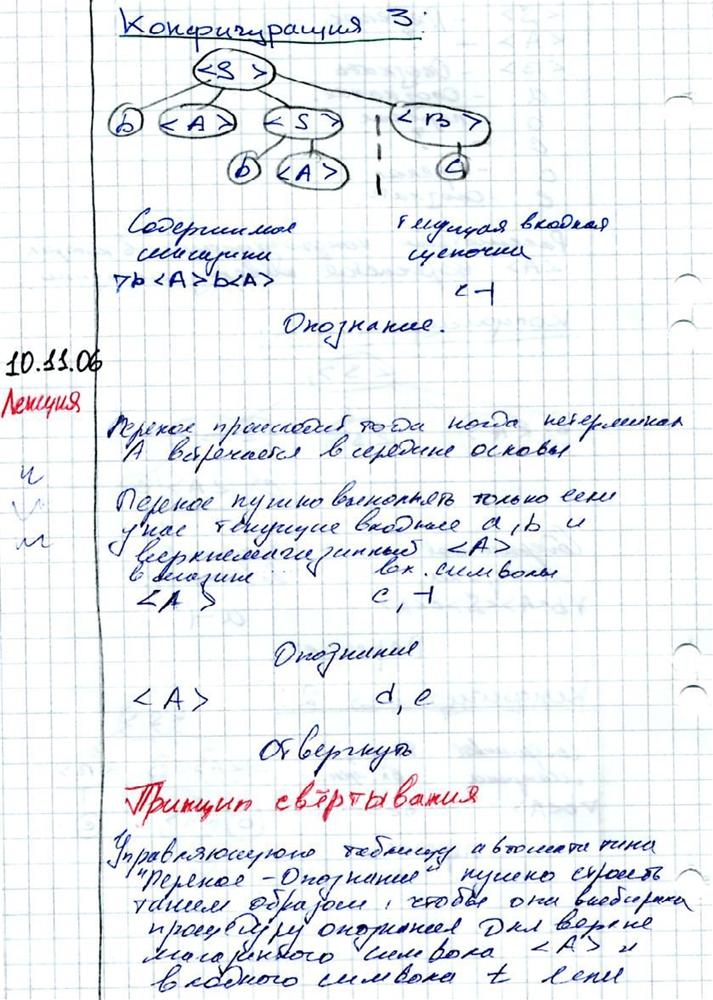 Конфигурация 3:
<S>
b <A> <S> <B>
b <A> c
Содержимое текущая входная
магазина цепочка
▽b<A>b<A> c⊣
Опознание.
10.11.06
Лекция
Перенос происходит тогда когда нетерминал
A встречается в середине основы
Перенос нужно выполнять только если
у нас текущие входные a, b и
верхнемагазинный <A>
в магазине вх. символы
<A> c, ⊣
Опознание
<A> d, e
Отвергнуть
Принцип свёртывания
Управляющую таблицу автомата типа
"Перенос - Опознание" нужно строить
таким образом, чтобы она выбирала
процедуру опознания для верхне
магазинного символа <A> и
входного символа t если